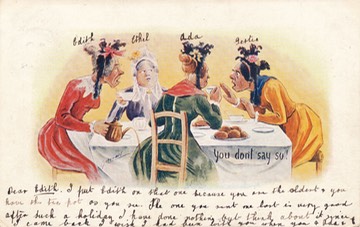 Edith Ethel Ada Gertie
You dont say so!
Dear Edith. I put Edith on that one because you are the eldest & you
have the tea pot as you see. The one you sent me last is very good
after such a holiday I have done nothing but think about it since
I came back I wish I had been with you when you